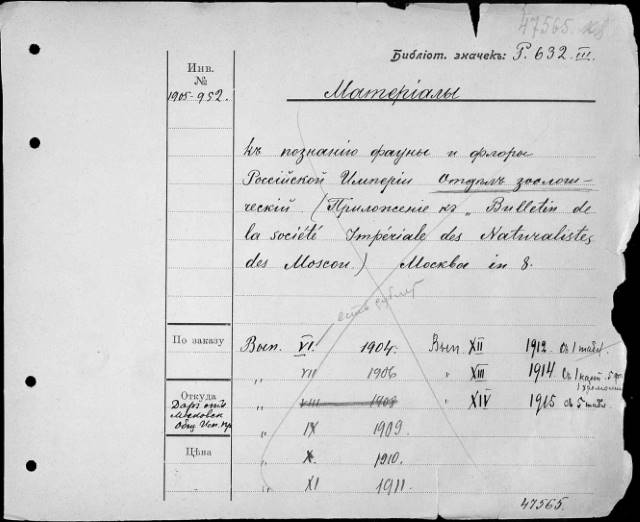 47565.
Библіот. значекъ: Р. 632. III.
Инв.
№
1905-952.
Матеріалы
къ познанію фауны и флоры
Россійской Имперіи Отдѣлъ зоологи-
ческій. (Приложеніе къ „Bulletin de
la société Impériale des Naturalistes
des Moscou.) Москва in 8.
есть дублет
По заказу
Вып. VI. 1904. Вып. XII 1912. съ 1 табл.
„ VII 1906 „ XIII 1914. съ 1 карт.
Откуда
Даръ отъ
Московск
Общ. Исп. пр
„ VIII 1908 „ XIV 1915 съ 5 табл.
„ IX 1909.
Цѣна
„ X. 1910.
„ XI 1911.
47565.